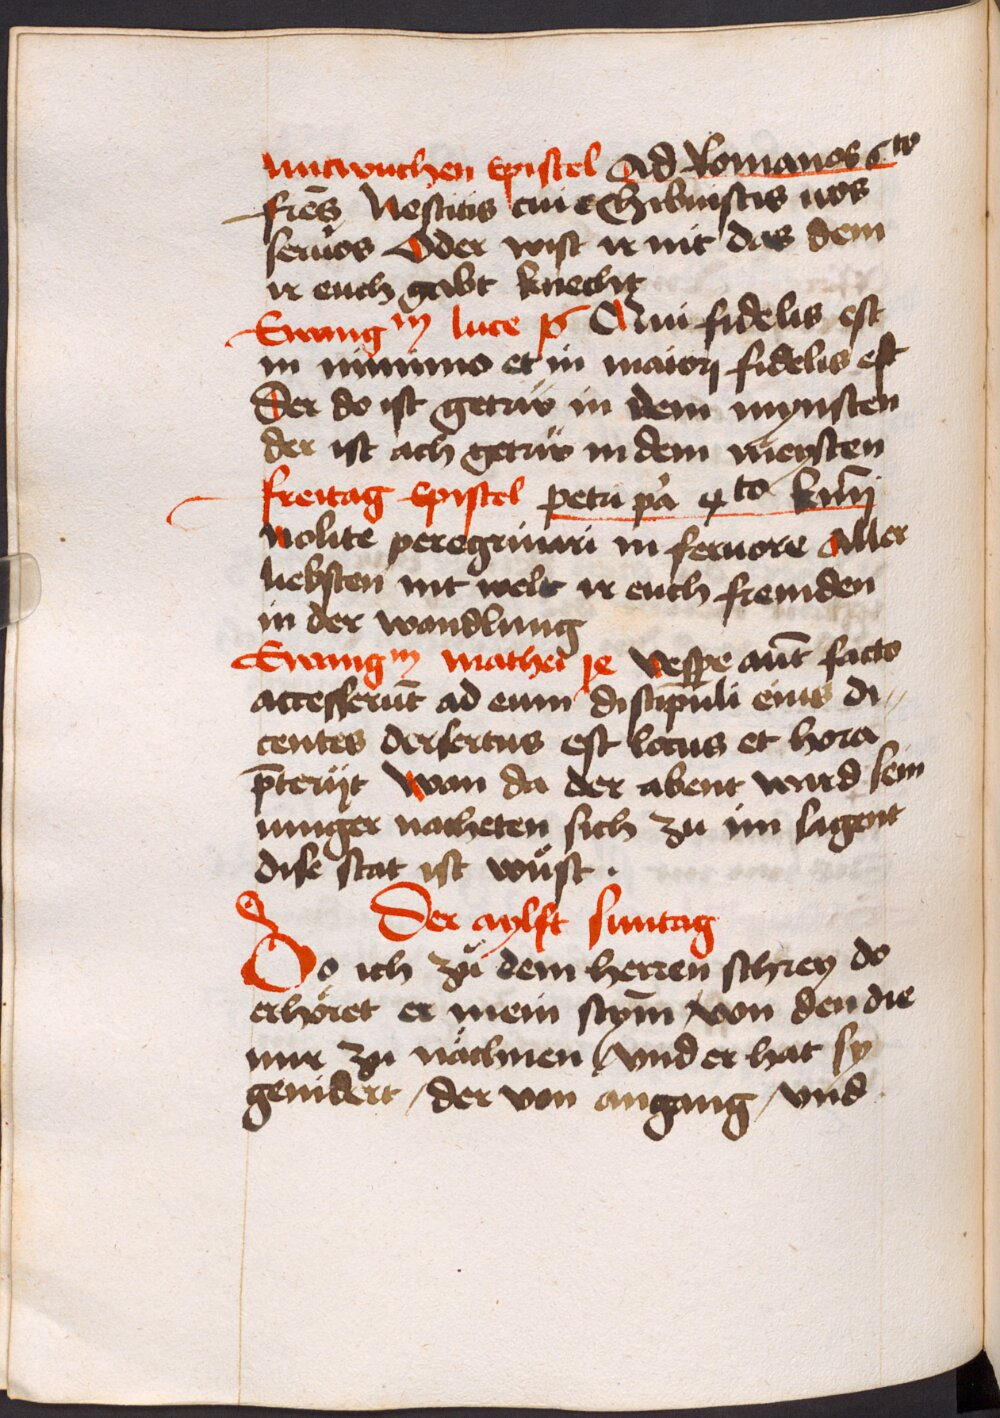 mitwuchen Epistel Ad Romanos 6to
fres Nescitis cui exhibuistis uos
seruos Oder wist ir nit das dem
ir euch gebt knecht
Ewangm luce Qui fidelis est
in minimo et in maiori fidelis est
Der do ist getrüv in dem mynsten
der ist ach getrüv in dem meysten
freitag Epistel petri pa 4to
Nolite peregrinari in feruore Aller
liebsten nit welt ir euch fremden
in der wondlung
Ewangm mathei Vespe aut facto
accesserut ad eum discipuli eius di
centes dersertus est locus et hora
pterijt Wan da der abent ward sein
iunger nacheten sich zu im sagent
dise stat ist wüst .
Der aylft suntag
Do ich zü dem herren schrey do
erhöret er mein stym / von den die
mir zu nächnen / vnd er hat sy
genidert / der von angang / vnd